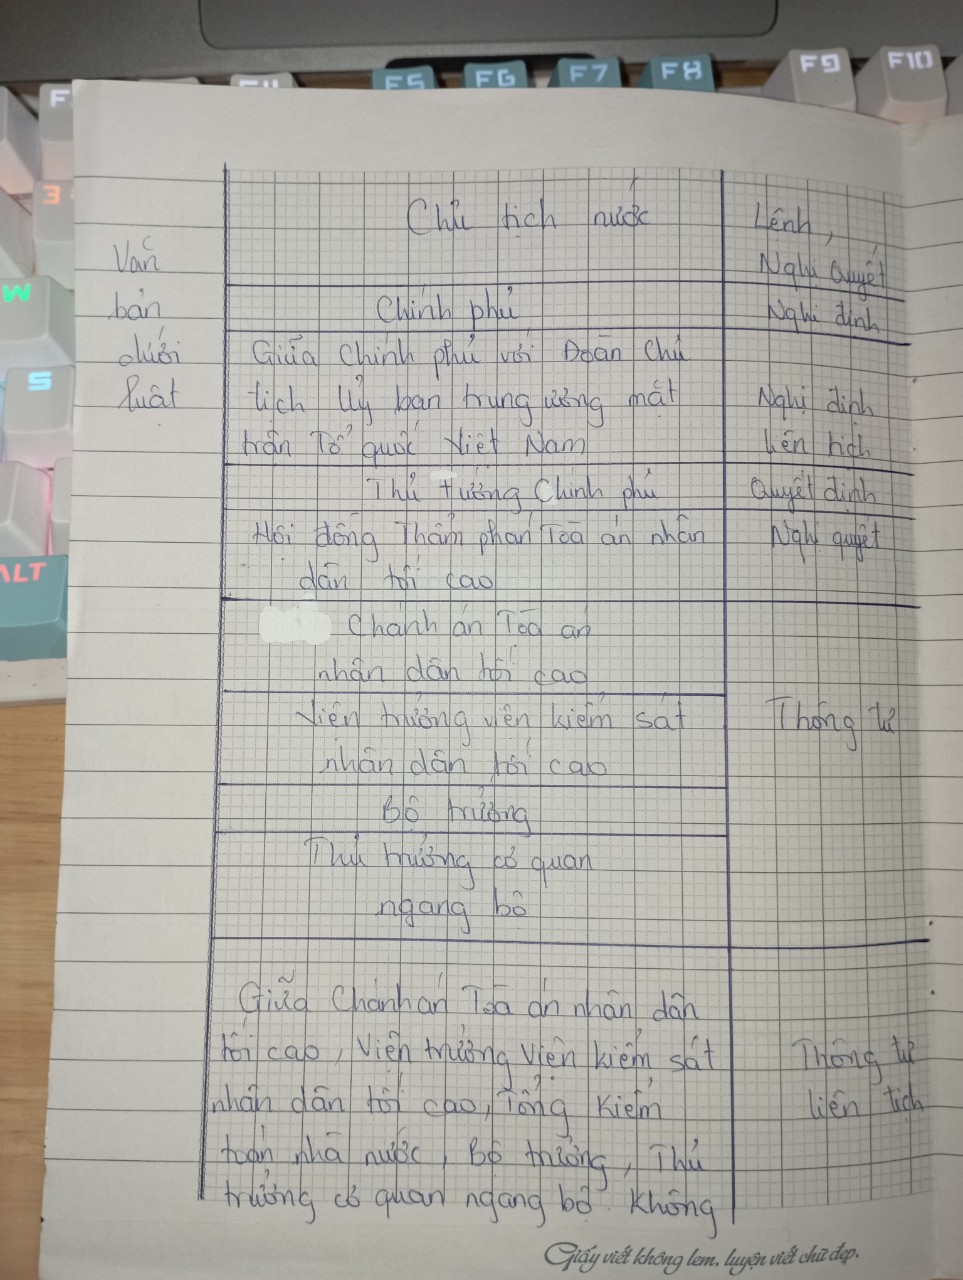 F5 F6 F7 F8 F9 F10
F
3
W
S
ALT
Văn
bản
dưới
luật
Chủ tịch nước
Lệnh,
Nghị Quyết
Chính phủ
Nghị định
Giữa Chính phủ với Đoàn Chủ
tịch Uỷ ban trung ương mặt
trận Tổ quốc Việt Nam
Nghị định
liên tịch
Thủ tướng Chính phủ
Quyết định
Hội đồng Thẩm phán Toà án nhân
dân tối cao
Nghị quyết
Chánh án Toà án
nhân dân tối cao
Viện trưởng viện kiểm sát
nhân dân tối cao
Thông tư
Bộ trưởng
Thủ trưởng cơ quan
ngang bộ
Giữa Chánh án Toà án nhân dân
tối cao, Viện trưởng Viện kiểm sát
nhân dân tối cao, Tổng Kiểm
toán nhà nước, Bộ trưởng, Thủ
trưởng cơ quan ngang bộ. Không
Thông tư
liên tịch
Giấy viết không lem, luyện viết chữ đẹp.